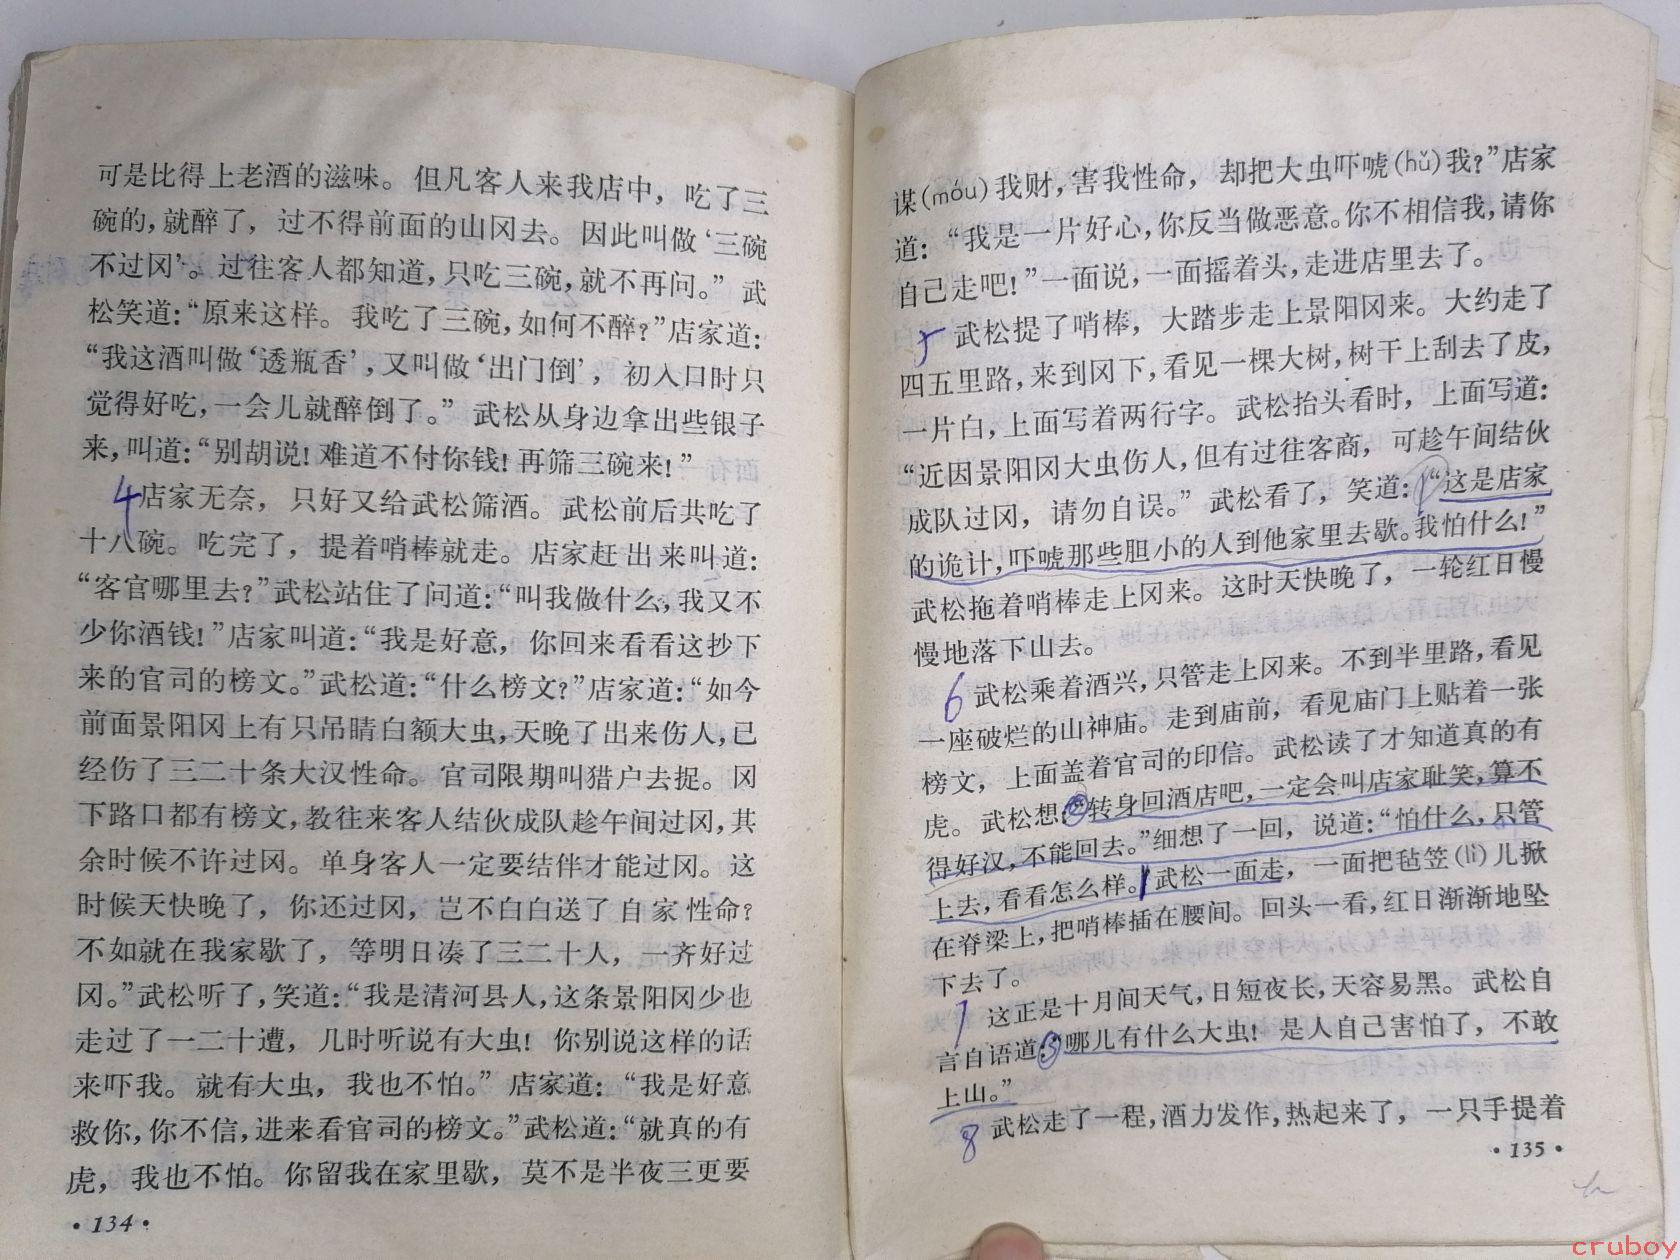 可是比得上老酒的滋味。但凡客人来我店中，吃了三
碗的，就醉了，过不得前面的山冈去。因此叫做‘三碗
不过冈’。过往客人都知道，只吃三碗，就不再问。”武
松笑道：“原来这样。我吃了三碗，如何不醉？”店家道：
“我这酒叫做‘透瓶香’，又叫做‘出门倒’，初入口时只
觉得好吃，一会儿就醉倒了。”武松从身边拿出些银子
来，叫道：“别胡说！难道不付你钱！再筛三碗来！”
4 店家无奈，只好又给武松筛酒。武松前后共吃了
十八碗。吃完了，提着哨棒就走。店家赶出来叫道：
“客官哪里去？”武松站住了问道：“叫我做什么，我又不
少你酒钱！”店家叫道：“我是好意，你回来看看这抄下
来的官司的榜文。”武松道：“什么榜文？”店家道：“如今
前面景阳冈上有只吊睛白额大虫，天晚了出来伤人，已
经伤了三二十条大汉性命。官司限期叫猎户去捉。冈
下路口都有榜文，教往来客人结伙成队趁午间过冈，其
余时候不许过冈。单身客人一定要结伴才能过冈。这
时候天快晚了，你还过冈，岂不白白送了自家性命？
不如就在我家歇了，等明日凑了三二十人，一齐好过
冈。”武松听了，笑道：“我是清河县人，这条景阳冈少也
走过了一二十遭，几时听说有大虫！你别说这样的话
来吓我。就有大虫，我也不怕。”店家道：“我是好意
救你，你不信，进来看官司的榜文。”武松道：“就真的有
虎，我也不怕。你留我在家里歇，莫不是半夜三更要
·134·
谋(móu)我财，害我性命，却把大虫吓唬(hǔ)我？”店家
道：“我是一片好心，你反当做恶意。你不相信我，请你
自己走吧！”一面说，一面摇着头，走进店里去了。
5 武松提了哨棒，大踏步走上景阳冈来。大约走了
四五里路，来到冈下，看见一棵大树，树干上刮去了皮，
一片白，上面写着两行字。武松抬头看时，上面写道：
“近因景阳冈大虫伤人，但有过往客商，可趁午间结伙
成队过冈，请勿自误。”武松看了，笑道：“这是店家
的诡计，吓唬那些胆小的人到他家里去歇。我怕什么！”
武松拖着哨棒走上冈来。这时天快晚了，一轮红日慢
慢地落下山去。
6 武松乘着酒兴，只管走上冈来。不到半里路，看见
一座破烂的山神庙。走到庙前，看见庙门上贴着一张
榜文，上面盖着官司的印信。武松读了才知道真的有
虎。武松想：②“转身回酒店吧，一定会叫店家耻笑，算不
得好汉，不能回去。”细想了一回，说道：“怕什么，只管
上去，看看怎么样。”武松一面走，一面把毡笠(lì)儿掀
在脊梁上，把哨棒插在腰间。回头一看，红日渐渐地坠
下去了。
7 这正是十月间天气，日短夜长，天容易黑。武松自
言自语道：③“哪儿有什么大虫！是人自己害怕了，不敢
上山。”
8 武松走了一程，酒力发作，热起来了，一只手提着
·135·
cruboy